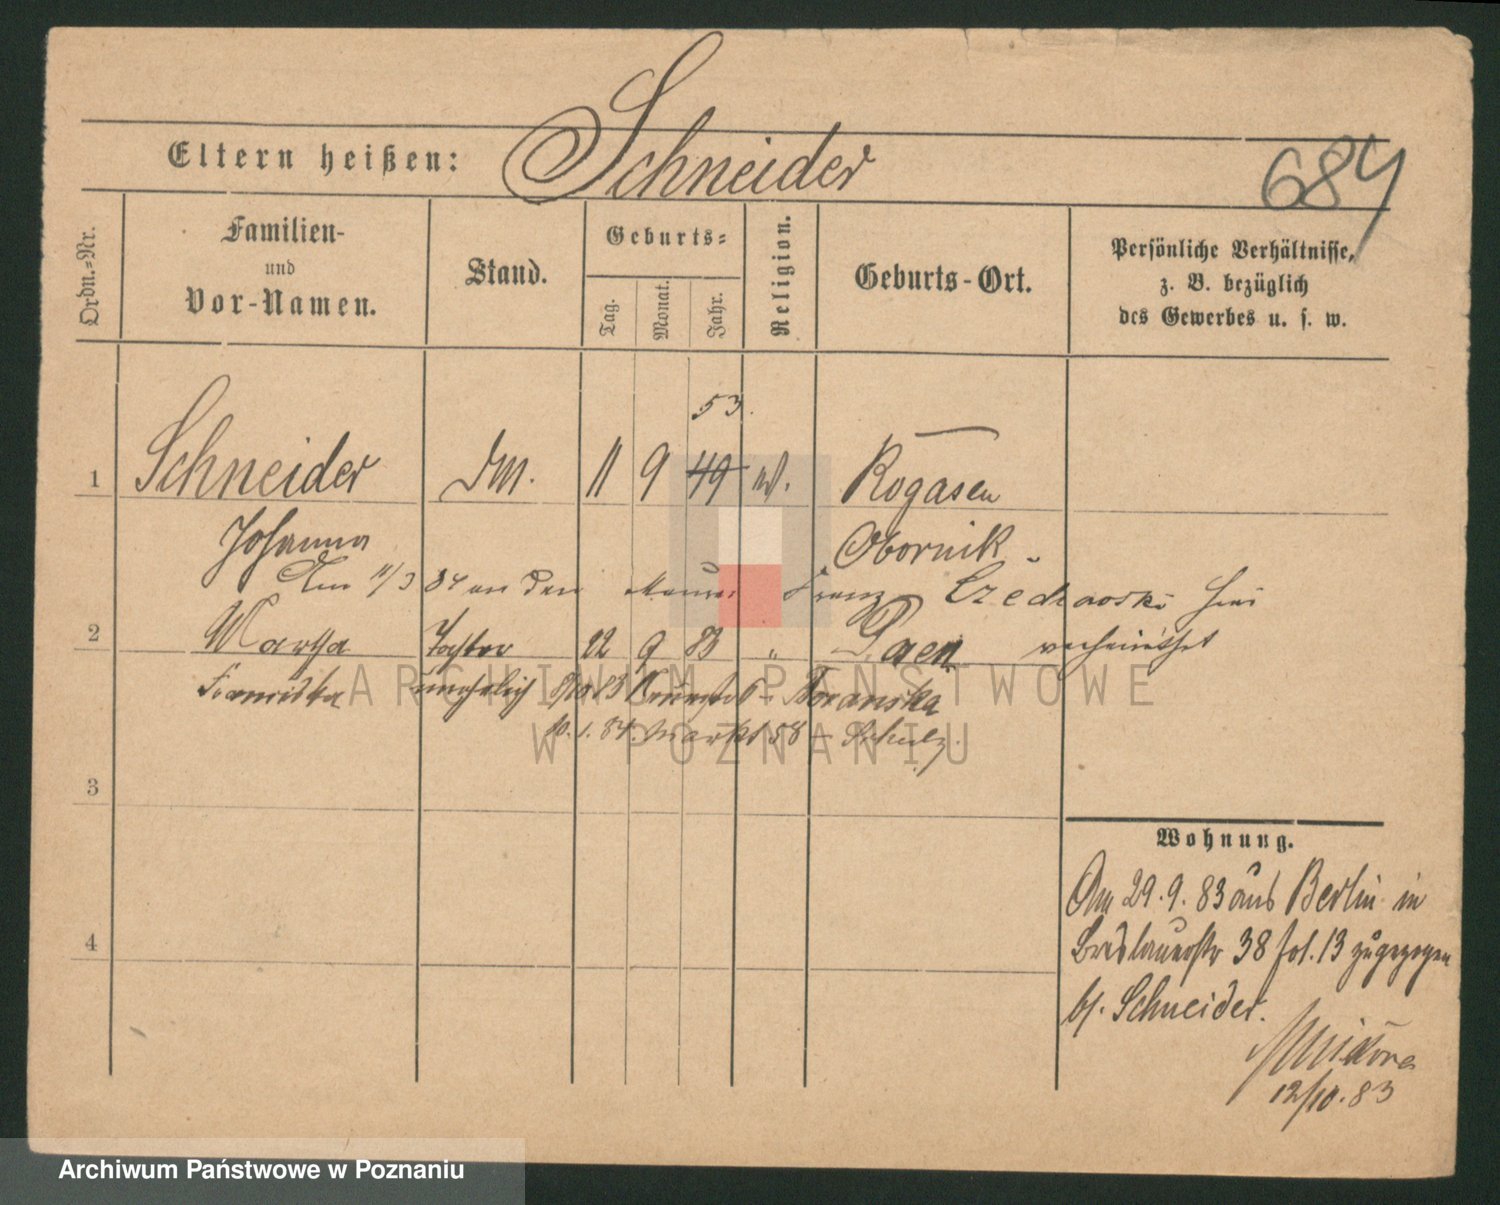 Schneider
Eltern heißen:
684
Ordn.-Nr.
Familien-
und
Vor-Namen.
Stand.
Geburts-
Tag.
Monat.
Jahr.
Religion.
Geburts-Ort.
Persönliche Verhältnisse,
z. B. bezüglich
des Gewerbes u. s. w.
53.
1 Schneider 11 9 49 Rogasen
Johanna Obornik
Am 11/3 84 an den Maurer Franz hier
verheirathet
2 Martha Tochter 22 9 83 " Posen
Franziska unehelich
10.1.84. Markt 58 – Schulz.
ARCHIWUM PAŃSTWOWE
W POZNANIU
3
4
Wohnung.
Am 29.9.83 aus Berlin in
Breslauerstr 38 fol. 13 zugezogen
bf. Schneider.
12/10.83
Archiwum Państwowe w Poznaniu